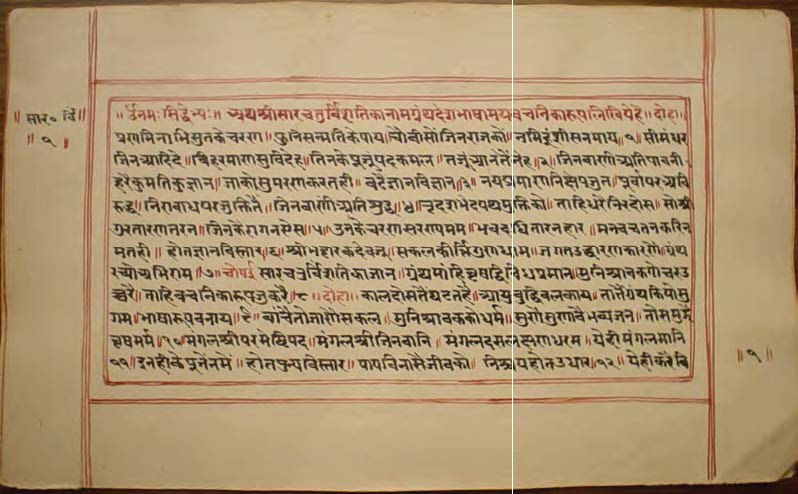 ॥ सार॰ चौ॥
॥ १ ॥
॥ ॐनमः सिद्धेभ्यः॥ अथ श्रीसारचतुर्विंशतिकानामग्रंथदेशभाषामयवचनिकारूपलिखियेहै॥ दोहा॥
प्रणमिनाभिसुतकेचरण॥ फुनिसन्मतिकेपाय॥ चौवीसोंजिनराजको॥ नमिहूंशीसनमाय॥१॥ सीमंधर
जिनआदिदे॥ विहरमाणसुविदेह॥ तिनकेपूजूंपदकमल॥ जिनवाणीअतिपावनी॥
हरेकुमतिकुज्ञान॥ जाकोसुमरणकरतही॥ बढैज्ञानविज्ञान॥३॥ नयप्रमाणनिक्षेपजुत॥ पूर्वापरअवि
रुद्ध॥ निराबाधपरजुक्तितै॥ जिनवाणीअतिशुद्ध॥४॥ ताहिधरेनिरदोस॥ सोश्री
गुरतारणतरन॥ जिनकेरागनरोस॥५॥ उनकेचरणसरणमम॥ भवदधितारनहार॥ मनवचतनकरिन
मतही॥ होतज्ञानविस्तार॥६॥ श्रीभट्टारकदेवजू॥ सकलकीर्त्तिगुणधाम॥ जगतउद्धारणकारणै॥ ग्रंथ
रच्योअभिराम॥७॥ चौपई॥ सारचतुर्विंशतिकाजान॥ ग्रंथमांहि द्विविधप्रमान॥ मुनिश्रावकगोचरउ
च्चरै॥ ताहिवचनिकारूपजुकरै॥८॥ दोहा॥ कालदोसतेंघटतहै॥ आयुबुद्धिबलकाय॥ तातैंग्रंथकियोसु
गम॥ भाषारूपबनाय॥९॥ बांचैतोजाणैसकल॥ मुनिश्रावककोधर्म॥ सुणैसुणावैभव्यजन॥ तोसमुझै
वृषमर्म॥१०॥ मंगलश्रीपरमेष्ठिपद॥ मंगलश्रीजिनवानि॥ मंगलदसलक्षणधरम॥ येहीमंगलमानि
॥११॥ इनहीकेपूजेंनमें॥ होतपुन्यविस्तार॥ पापविनासैजीवको॥ निश्चयहोतउधार॥१२॥ येहीकरेंवि
॥ १ ॥